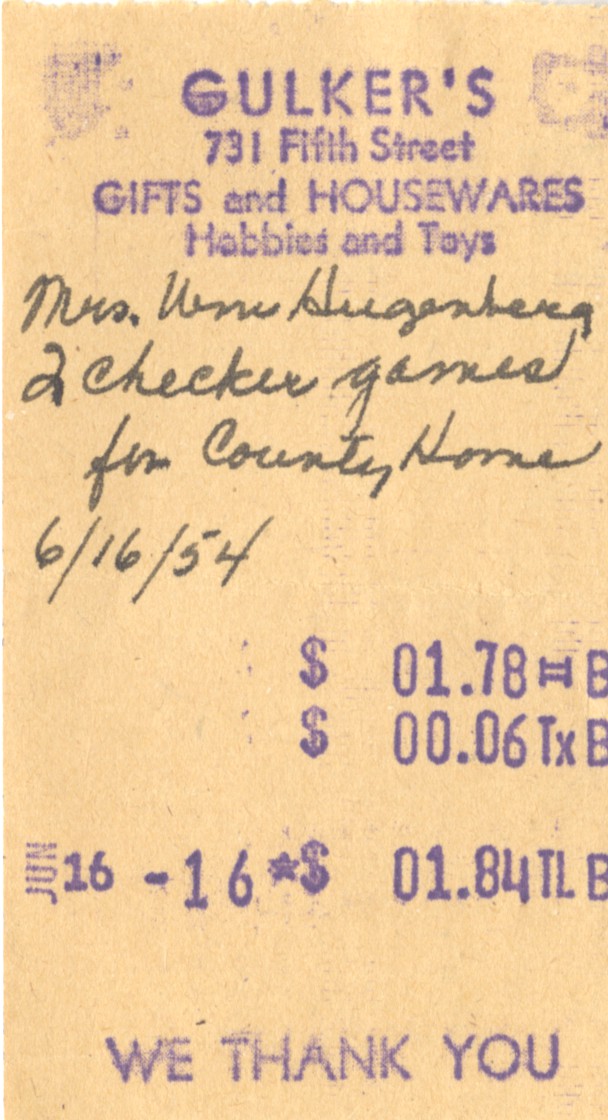 GULKER'S
731 Fifth Street
GIFTS and HOUSEWARES
Hobbies and Toys
Mrs. Wm Hugenberg
2 checker games
for County Home
6/16/54
$ 01.78 = B
$ 00.06 Tx B
JUN 16 - 1 6 *$ 01.84 TL B
WE THANK YOU